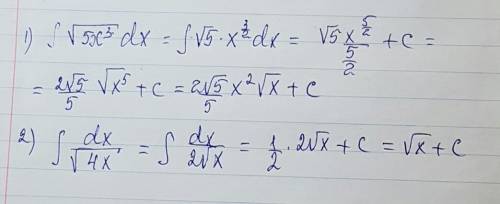 1) ∫ √(5x³) dx = ∫ √5 · x^(3/2) dx = √5 x^(5/2) / (5/2) + c =
= 2√5/5 √(x⁵) + c = 2√5/5 x² √x + c
2) ∫ dx/√(4x) = ∫ dx/(2√x) = 1/2 · 2√x + c = √x + c